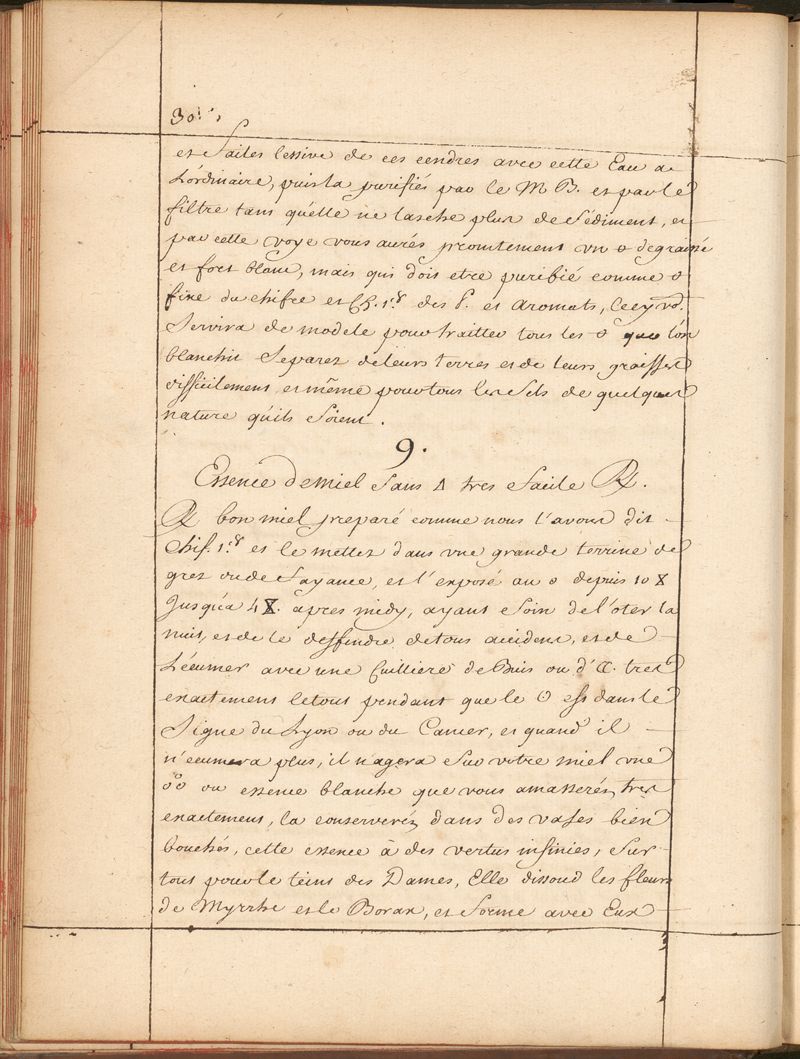 30.
et faites lessive de ces cendres avec cette Eau a
L'ordinaire, puis la purifiés par le M B. et par le
filtre tans qu'elle ne lasche plus de sédiment, et
par cette voye vous aurés promtement vn 🜔 degraissé
et fort blanc, mais qui doit etre purifié comme 🜔
fixe du chifre et Ch. 1.er des P. et aromats, cecy vo.
Servira de modele pour traitter tous les 🜔 que l'on
blanchit Separez de leurs terres et de leurs graisses
difficilement et même pour tous les Sels de quelques
nature qu'ils soient.
9.
Essence de miel sans 🜂 tres facile ℞.
℞ bon miel preparé comme nous l'avons dit
Chif. 1.er et le mettez dans vne grande terrine de
grez ou de fayance, et l'exposé au ☉ depuis 10 X
Jusqu'a 4 X. apres midy, ayant soin de l'oter la
nuit, et de le deffendre de tous accident, et de
L'écumer avec une Cuilliere de Buis ou d'☾. tres
exactement le tout pendant que le ☉ est dans le
Signe du Lyon ou du Cancer, et quand il
n'écumera plus, il nagera sur votre miel vne
°°° ou essence blanche que vous amasserés tres
exactement, la conserverés dans des vases bien
bouchés, cette essence à des vertus infinies, Sur
tous pour le teint des Dames, Elle dissoud les fleurs
de Myrrhe et le Borax, et forme avec Eux